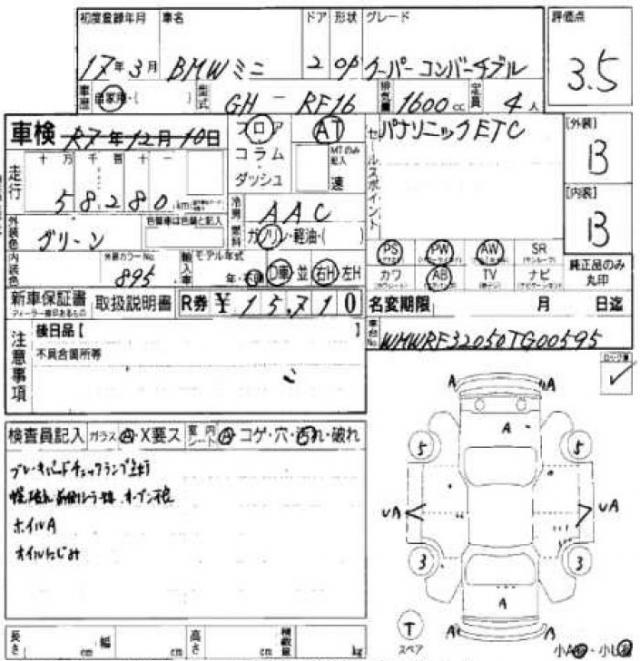 初度登録年月 車名 ドア 形状 グレード 評価点
17年3月 BMWミニ 2 OP クーパー コンバーチブル 3.5
車歴 自家用・( ) 型式 GH - RF16 排気量 1600cc 定員 4人
車検 R7年12月10日 フロア AT セールスポイント パナソニックETC [外装]
十万千百十一 コラム MTのみ記入 B
走行 58280km ダッシュ 速 [内装]
冷房 AAC B
外装色 グリーン 色替車は色替と記入 燃料 ガソリン・軽油・( )
PS PW AW SR 純正品のみ丸印
内装色 外装カラーNo. 895 輸入車 モデル年式 年・不明 D車 並 右H 左H
カワ AB TV ナビ
新車保証書 取扱説明書 R券 ¥15,710 名変期限 月 日迄
ディーラー捺印あるもの
注意事項 後日品[ ] 車台No. WMWRF32050TG00595
不具合箇所等
検査員記入 ガラス A・X要ス 室内シート A コゲ・穴・汚れ・破れ
ブレーキパッドチェックランプ点灯
ホイルA
オイルにじみ
A A
A
5 5
UA UA
3 3
A
T A A
スペア 小A・小U
長さ cm 幅 cm 高さ cm 積載量 kg